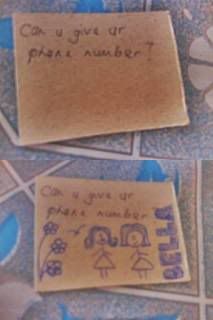 Can u give ur
phone number?
Can u give ur
phone number
BELLA